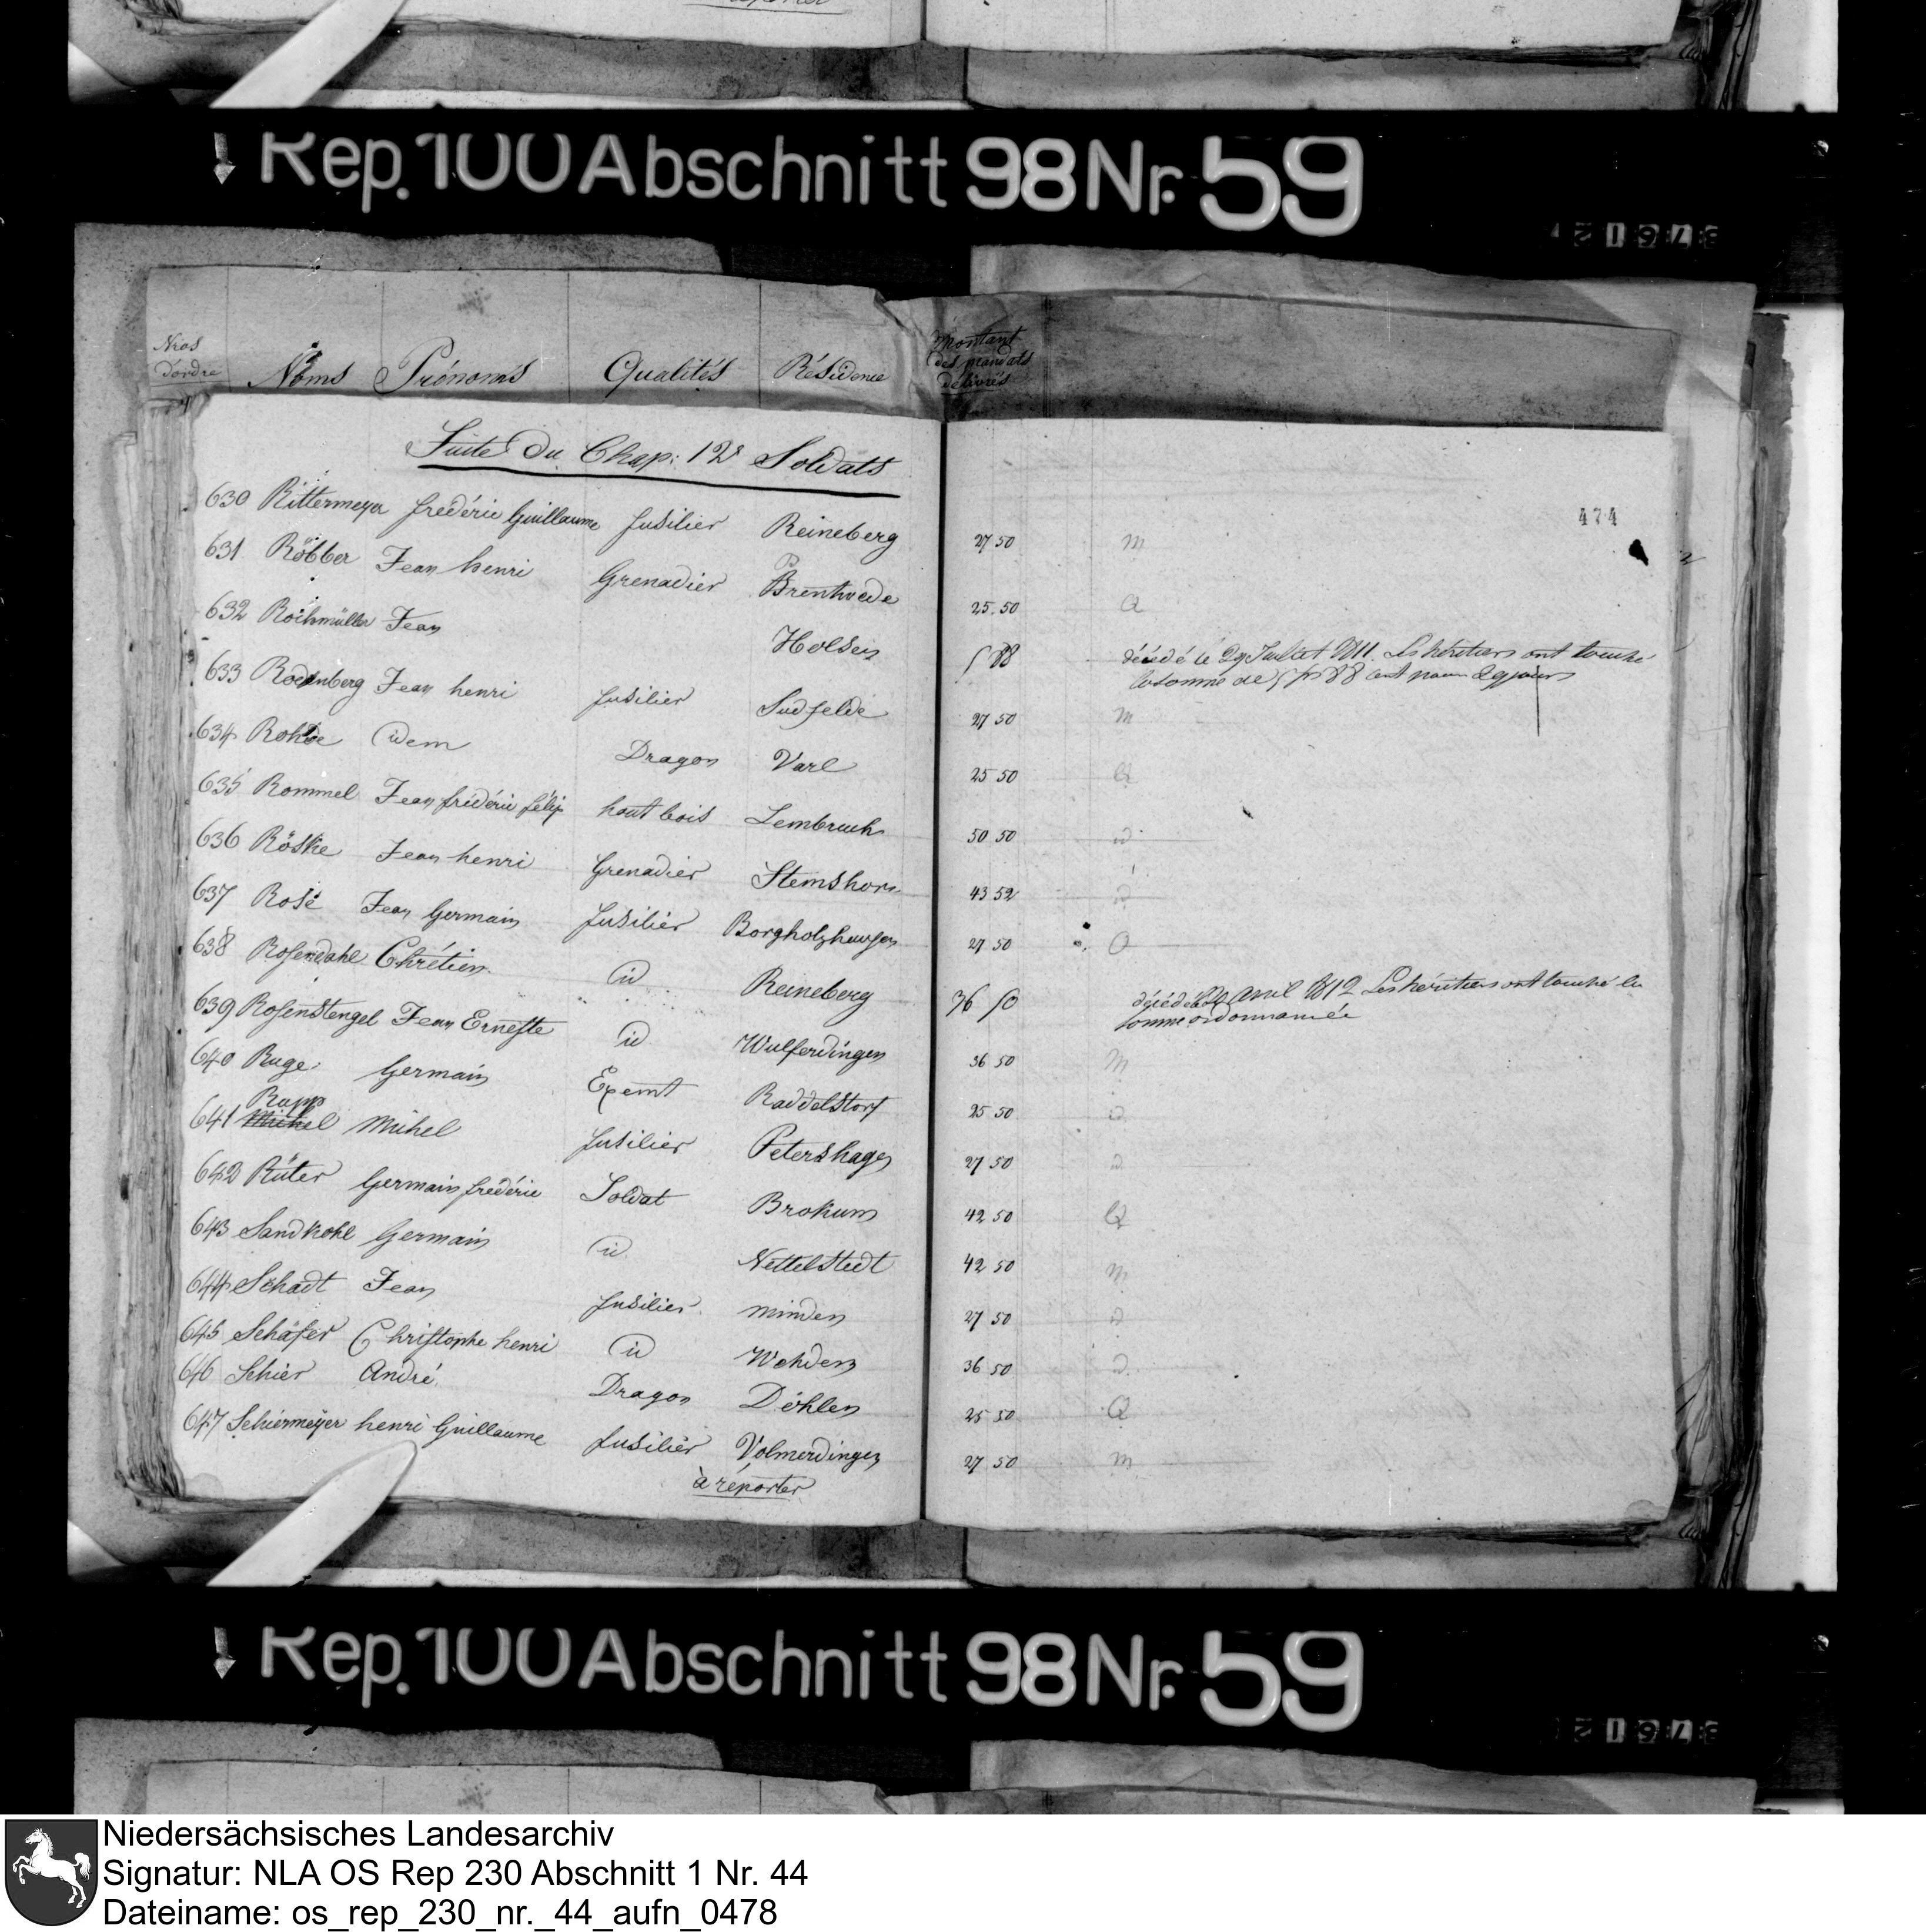 Rep. 100 Abschnitt 98 Nr. 59
Nros d'ordre Noms Prénoms Qualités Résidence Montant des mandats delivrés
Suite du Chap: 12 Soldats
474
630 Rittermeyer frédéric Guillaume fusilier Reineberg 27 50 m
631 Röbber Jean henri Grenadier Brenhorde 25.50 Q
632 Jean Holsen 5 88 décédé le 29 Juillet 1811. Les héritiers ont touché
la somme de 5 fr 88 cent pour 29 jours
633 Jean henri fusilier Sudfelde 27 50 m
634 Rohde idem Dragon Varl 25 50 Q
635 Rommel Jean frédéric félix hautbois Lembruch 50 50 d
636 Röske Jean henri Grenadier Stemshorn 43 52 d
637 Rose Jean Germain fusilier Borgholzhausen 27 50 O
638 Rosendahl Chrétien id Reineberg 36 50 décédé avril 1812 Les héritiers ont touché la
somme ordonnancée
639 Rosenstengel Jean Erneste id Wulferdingen 36 50 m
640 Ruge Germain Exemt Raddelstorf 25 50 d
Rupp
641 Michel Michel fusilier Petershagen 27 50 d
642 Rüter Germain frédéric Soldat Brokum 42 50 Q
643 Sandkohl Germain id Nettelstedt 42 50 m
644 Schadt Jean fusilier minden 27 50 d
645 Schäfer Christophe henri id Wehden 36 50 d
646 Schier André Dragon Döhlen 25 50 Q
647 Schiermeÿer henri Guillaume fusilier Volmerdingen 27 50 m
à réporter
Rep. 100 Abschnitt 98 Nr. 59
Niedersächsisches Landesarchiv
Signatur: NLA OS Rep 230 Abschnitt 1 Nr. 44
Dateiname: os_rep_230_nr._44_aufn_0478